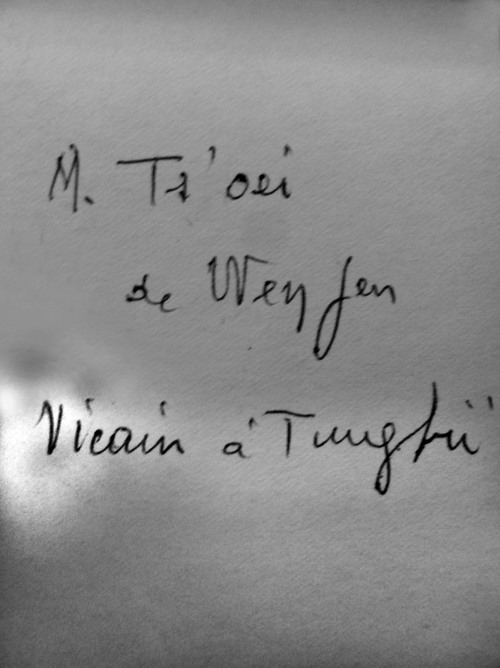 M. Ts'oei
de Wen Jen
Vicain à Tungfü